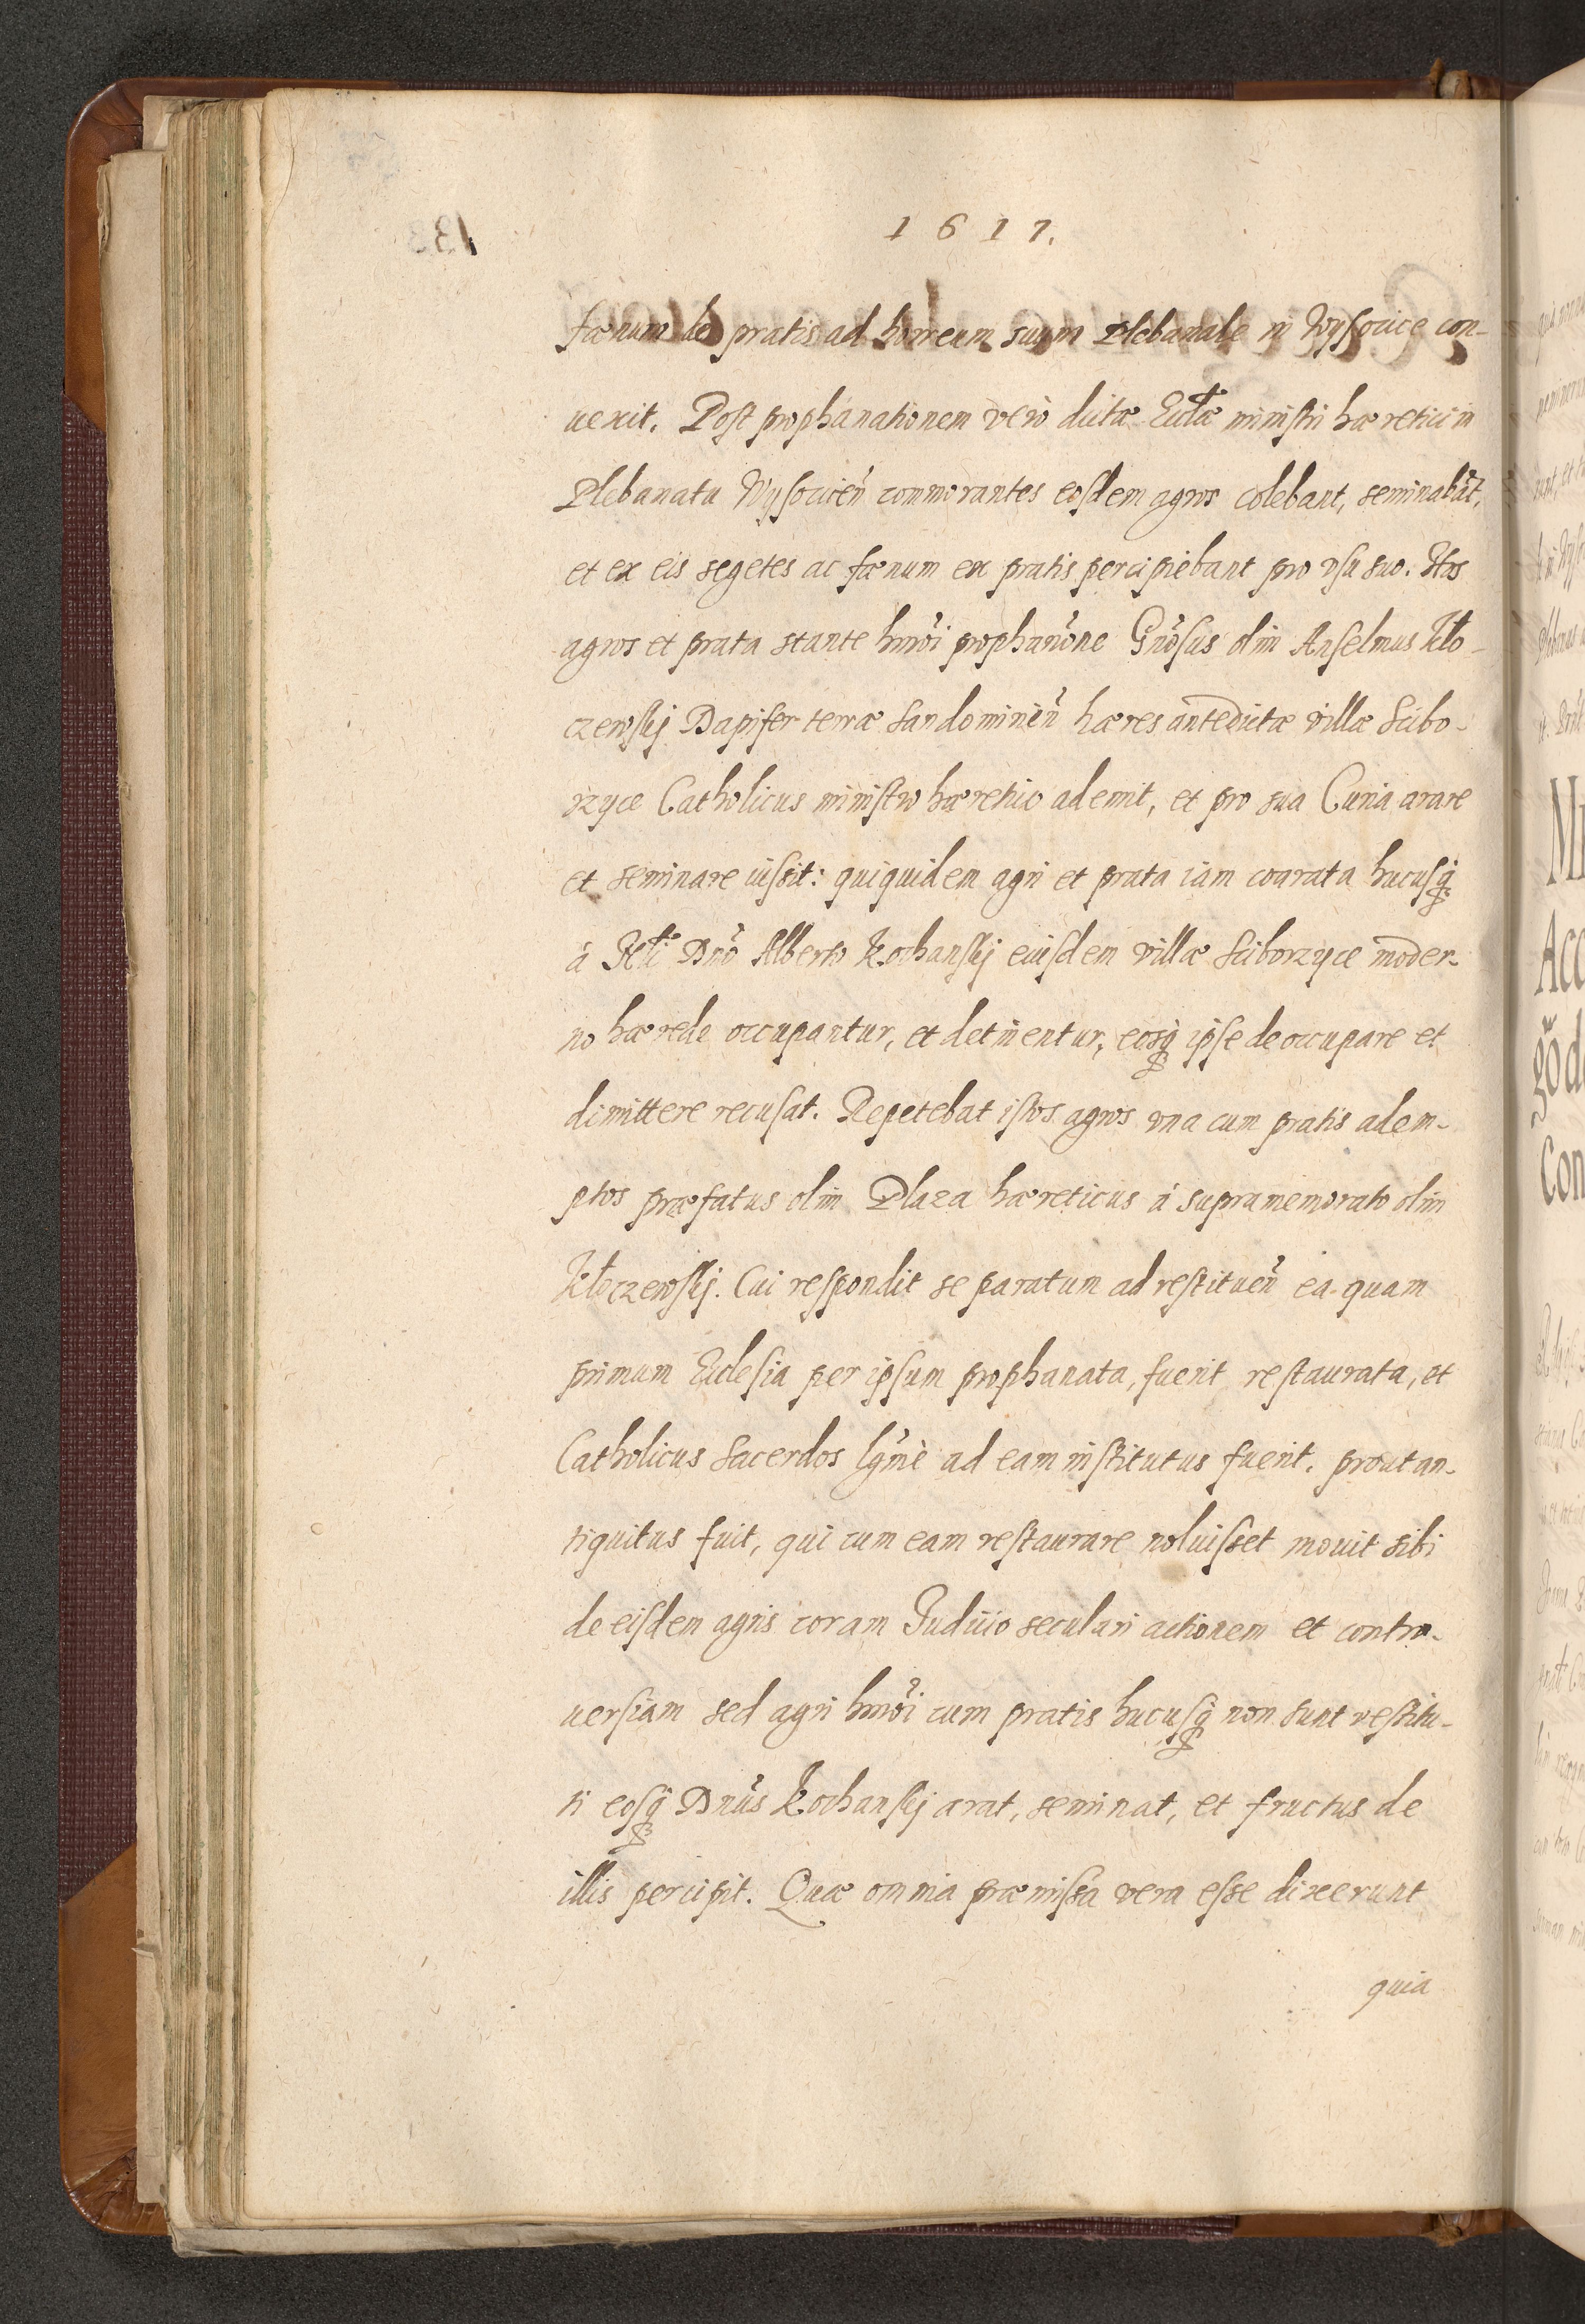 1617.
fœnum de pratis ad horreum suum Plebanale in Wysocice con-
uexit. Post prophanationem verò dictæ Eccłæ ministri hæretici in
Plebanatu Wysocicen̄ commorantes eosdem agros colebant, seminabāt,
et ex eis segetes ac fœnum ex pratis percipiebant pro vsu suo. Hos
agros et prata stante hmōi prophanōne Gnōsus olim Anselmus Kło-
czewskj Dapifer terræ Sandomirien̄ hæres antedictæ villæ Scibo-
rzyce Catholicus ministro hæretico ademit, et pro sua Curia arare
et seminare iussit: quiquidem agri et prata iam coarata hucusq̨
à Dno Alberto Kochanskj eiusdem villæ Sciborzyce moder-
no hærede occupantur, et detinentur, eosq̨ ipse deoccupare et
dimittere recusat. Repetebat istos agros vna cum pratis adem-
ptos præfatus olim Plaza hæreticus à supramemorato olim
Kłoczewskj. Cui respondit se paratum ad restituen̄ ea quam
primum Ecclesia per ipsum prophanata, fuerit restaurata, et
Catholicus Sacerdos lgm̄è ad eam institutus fuerit, prout an-
tiquitus fuit, qui cum eam restaurare noluisset mouit sibi
de eisdem agris coram Judicio seculari actionem et contro-
uersiam sed agri hmōi cum pratis hucusq̨ non sunt restitu-
ti eosq̨ Dnūs Kochanskj arat, seminat, et fructus de
illis percipit. Quæ omnia præmissa vera esse dixerunt
quia